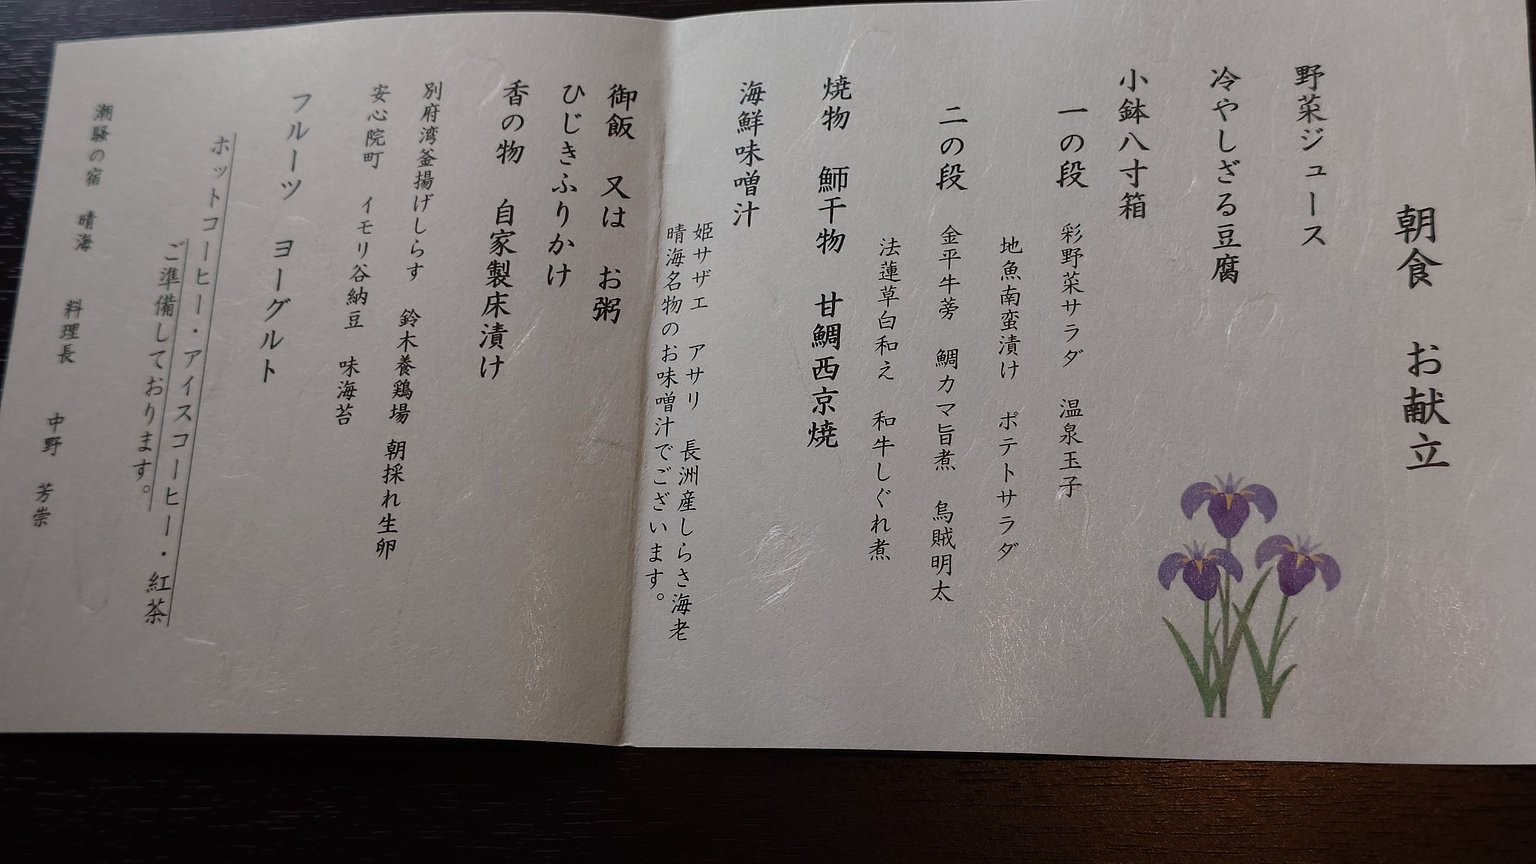 朝食 お献立
野菜ジュース
冷やしざる豆腐
小鉢八寸箱
一の段 彩野菜サラダ 温泉玉子
地魚南蛮漬け ポテトサラダ
二の段 金平牛蒡 鯛カマ旨煮 烏賊明太
法蓮草白和え 和牛しぐれ煮
焼物 鰤干物 甘鯛西京焼
海鮮味噌汁
姫サザエ アサリ 長洲産しらさ海老
晴海名物のお味噌汁でございます。
御飯 又は お粥
ひじきふりかけ
香の物 自家製床漬け
別府湾釜揚げしらす 鈴木養鶏場 朝採れ生卵
安心院町 イモリ谷納豆 味海苔
フルーツ ヨーグルト
ホットコーヒー・アイスコーヒー・紅茶
ご準備しております。
潮騒の宿 晴海 料理長 中野 芳崇